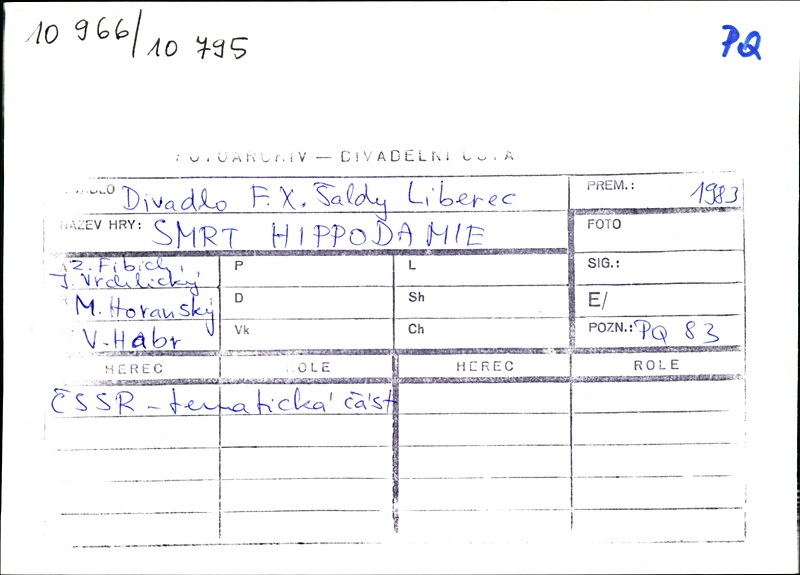 10 966/10 795
PQ
FOTOARCHIV — DIVADELNÍ ÚSTA
Divadlo F. X. Šaldy Liberec
PREM.: 1983
NÁZEV HRY: SMRT HIPPODAMIE
FOTO
Z. Fibich,
J. Vrchlický
P
L
SIG.:
M. Horanský
D
Sh
E/
V. Habr
Vk
Ch
POZN.: PQ 83
HEREC
ROLE
HEREC
ROLE
ČSSR – tematická část